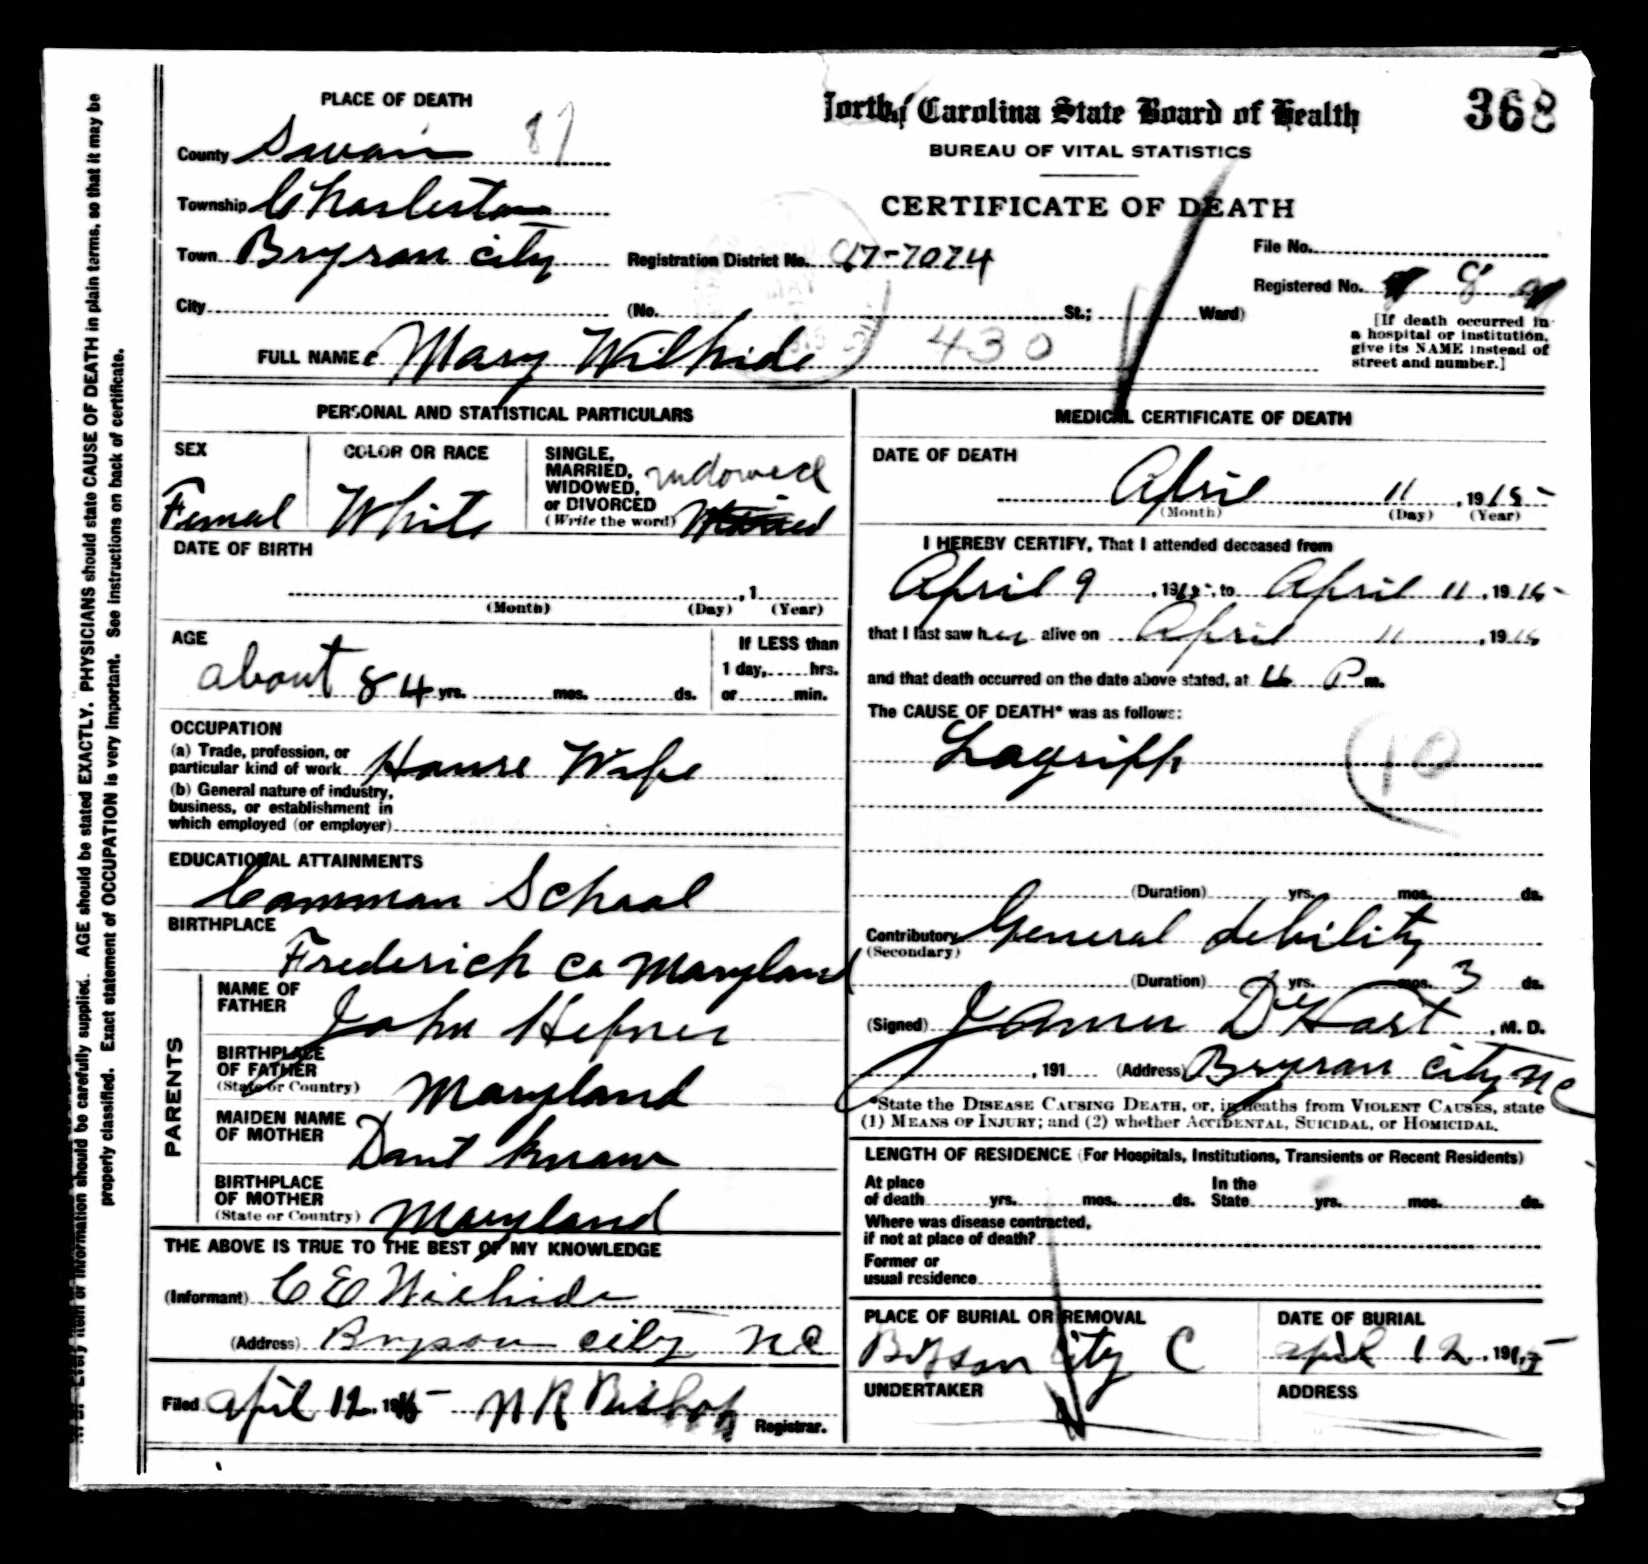 PLACE OF DEATH
North Carolina State Board of Health
368
BUREAU OF VITAL STATISTICS
CERTIFICATE OF DEATH
County Swain 87
Township Charleston
Town Bryson city
Registration District No. 97-7074
File No.
Registered No. 8
City (No. St.; Ward)
[If death occurred in
a hospital or institution,
give its NAME instead of
street and number.]
FULL NAME Mary Wilhide 430
PERSONAL AND STATISTICAL PARTICULARS
SEX
Femal
COLOR OR RACE
White
SINGLE,
MARRIED,
WIDOWED,
or DIVORCED
(Write the word)
widowed
DATE OF BIRTH
, 1
(Month) (Day) (Year)
AGE
about 84 yrs. mos. ds.
If LESS than
1 day, hrs.
or min.
OCCUPATION
(a) Trade, profession, or
particular kind of work House Wife
(b) General nature of industry,
business, or establishment in
which employed (or employer)
EDUCATIONAL ATTAINMENTS
Common School
BIRTHPLACE
Frederich Co Maryland
PARENTS
NAME OF
FATHER
John Hefner
BIRTHPLACE
OF FATHER
(State or Country) Maryland
MAIDEN NAME
OF MOTHER
Dont Know
BIRTHPLACE
OF MOTHER
(State or Country) Maryland
THE ABOVE IS TRUE TO THE BEST OF MY KNOWLEDGE
(Informant) C E Wilhide
(Address) Bryson city NC
Filed April 12, 1915 N R Bishop
Registrar.
MEDICAL CERTIFICATE OF DEATH
DATE OF DEATH
April 11, 1915
(Month) (Day) (Year)
I HEREBY CERTIFY, That I attended deceased from
April 9, 1915, to April 11, 1915
that I last saw her alive on April 11, 1915
and that death occurred on the date above stated, at 4 P m.
The CAUSE OF DEATH* was as follows:
Lagripp 10
(Duration) yrs. mos. ds.
Contributory General debility
(Secondary)
(Duration) yrs. mos. 3 ds.
(Signed) Hart, M. D.
, 191 (Address) Bryson city NC
*State the DISEASE CAUSING DEATH, or, in deaths from VIOLENT CAUSES, state
(1) MEANS OF INJURY; and (2) whether ACCIDENTAL, SUICIDAL, or HOMICIDAL.
LENGTH OF RESIDENCE (For Hospitals, Institutions, Transients or Recent Residents)
At place
of death yrs. mos. ds.
In the
State yrs. mos. ds.
Where was disease contracted,
if not at place of death?
Former or
usual residence
PLACE OF BURIAL OR REMOVAL
Bryson City C
DATE OF BURIAL
april 12, 1915
UNDERTAKER
ADDRESS
Every item of information should be carefully supplied. AGE should be stated EXACTLY. PHYSICIANS should state CAUSE OF DEATH in plain terms, so that it may be
properly classified. Exact statement of OCCUPATION is very important. See instructions on back of certificate.